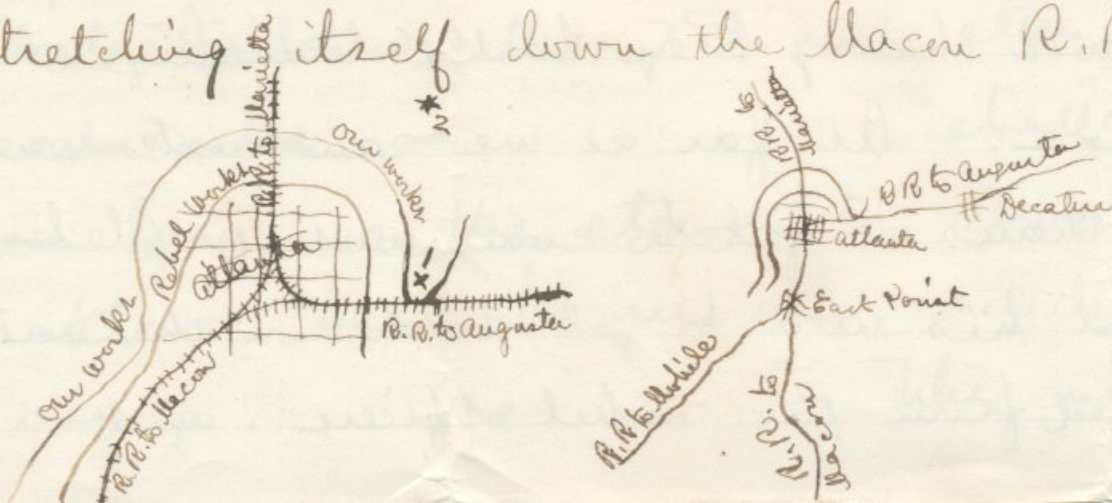 tretching itself down the Macon R.R
R.R. to Marietta
Our works
Rebel Works
Atlanta
Our works
R.R. to Macon
R.R. to Augusta
R.R. to
Marietta
R R to Augusta
Decatur
Atlanta
East Point
R.R. to Mobile
R.R. to
Macon